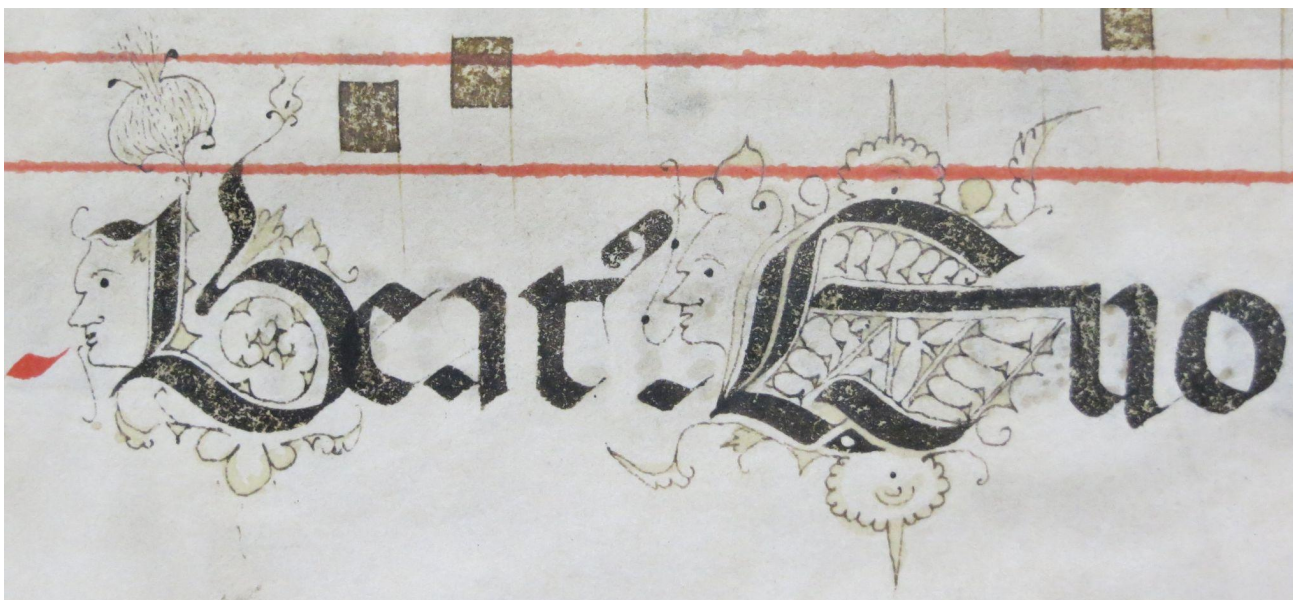 Beat’. Euo